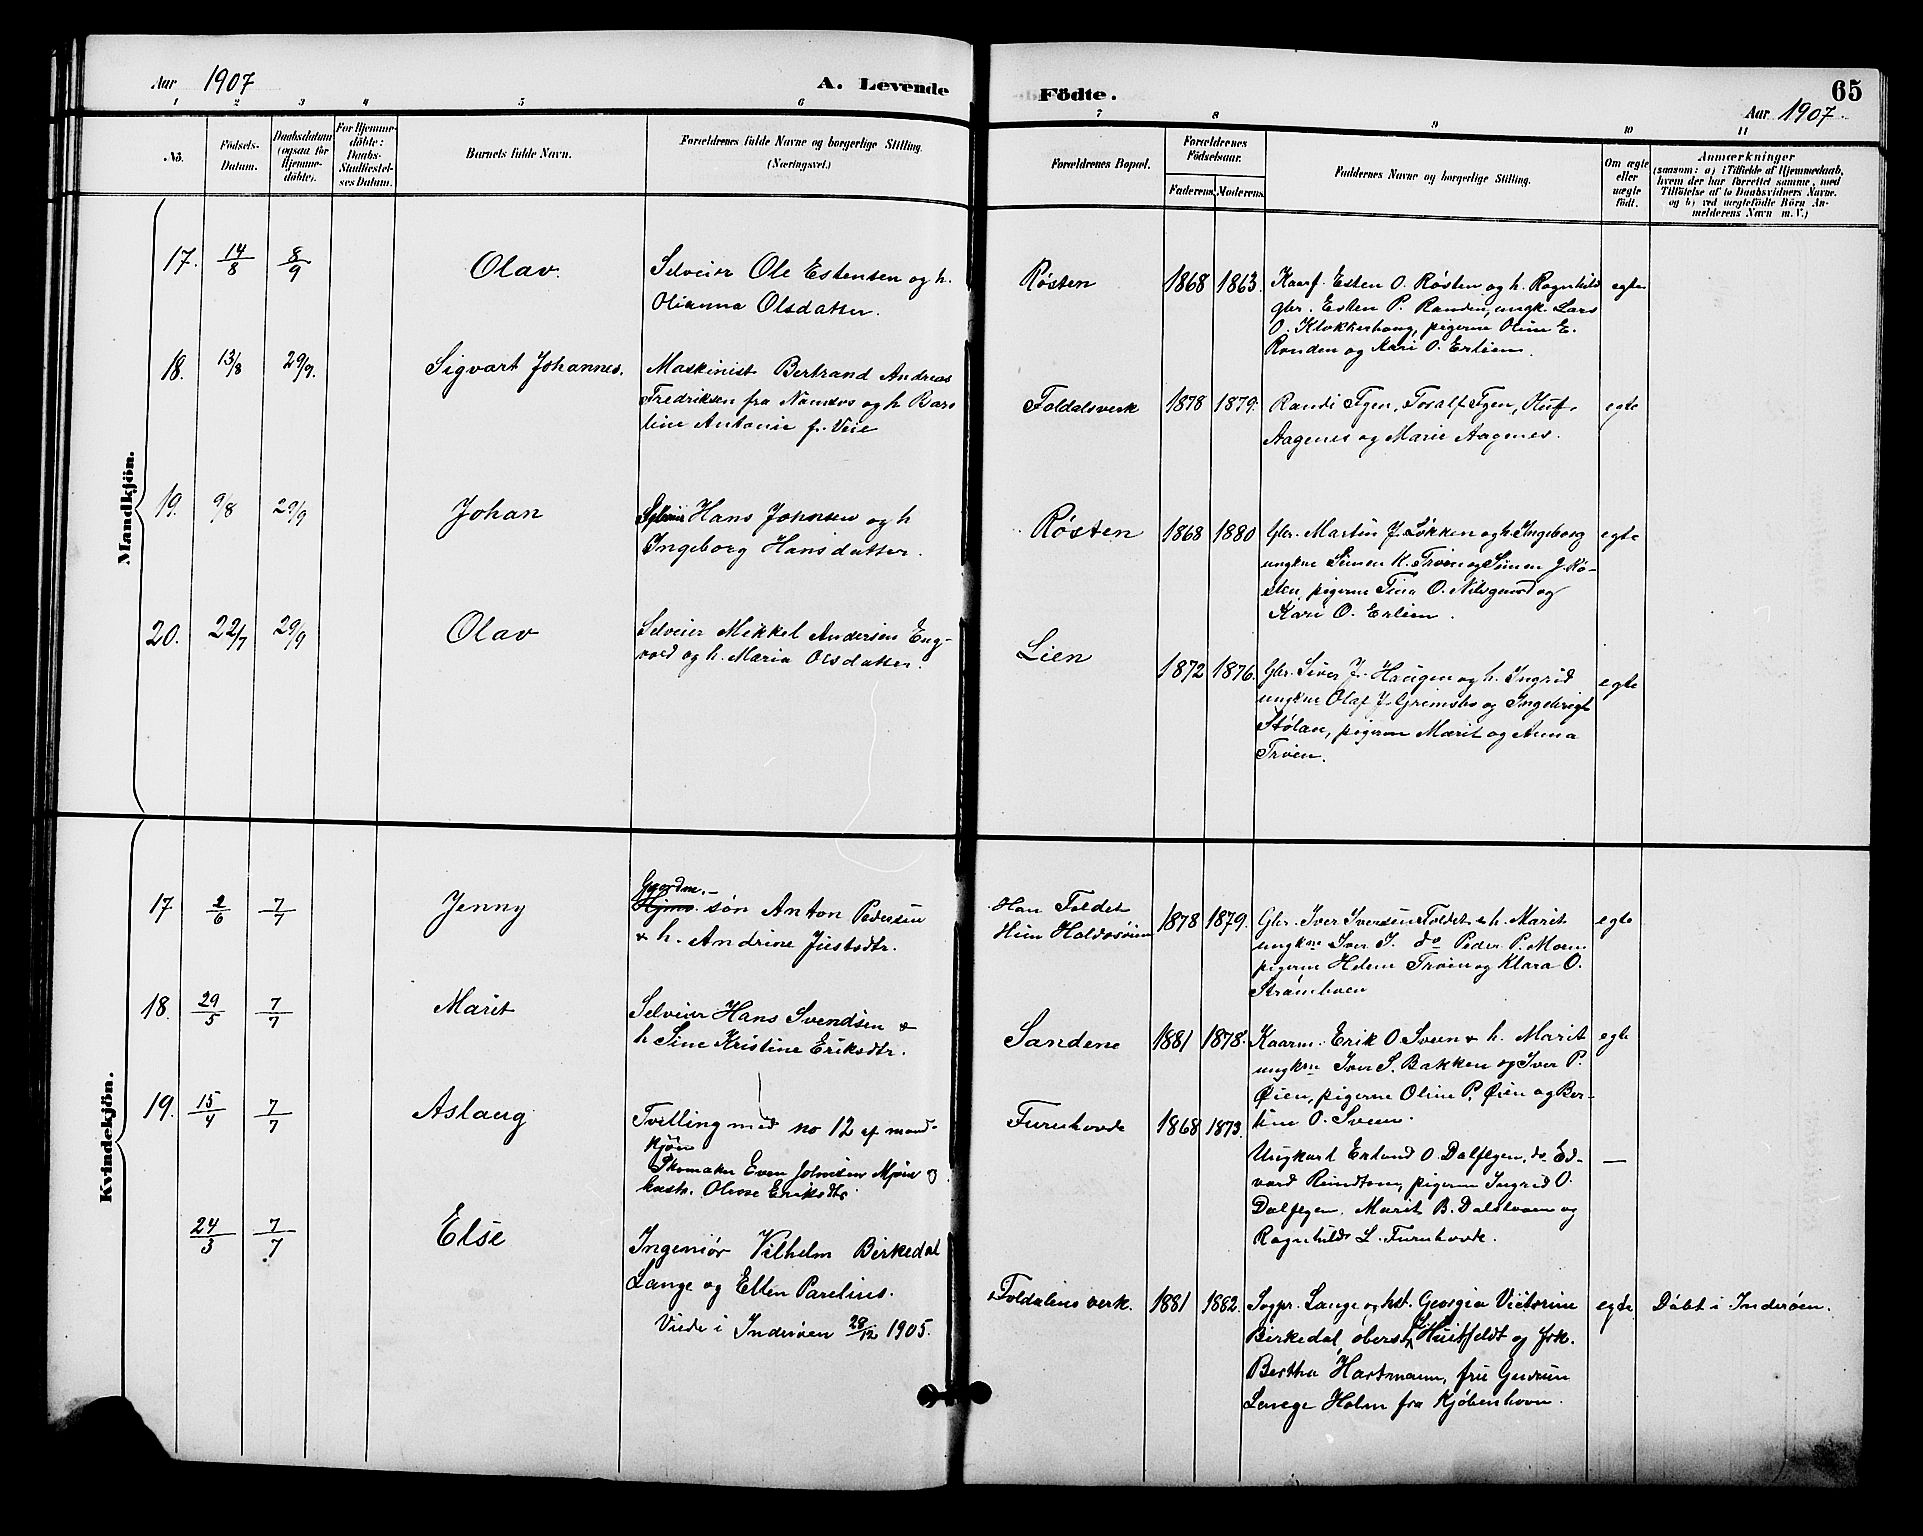 Aar 1907
A. Levende
Födte.
65
Aar 1907.
1 2 3 4 5 6 7 8 9 10 11
No.
Födsels-
Datum.
Daabsdatum
(ogsaa for
Hjemme-
döbte).
For Hjemme-
döbte:
Daabs-
Stadfæstel-
ses Datum.
Barnets fulde Navn.
Forældrenes fulde Navne og borgerlige Stilling.
(Næringsvei.)
Forældrenes Bopæl.
Forældrenes
Födselsaar.
Faderens. Moderens.
Faddernes Navne og borgerlige Stilling.
Om ægte
eller
uægte
födt.
Anmærkninger
(saasom: a) i Tilfælde af Hjemmedaab,
hvem der har forrettet samme, med
Tilföielse af to Daabsvidners Navne.
og b) ved uægtefödte Börn An-
melderens Navn m. V.)
Mandkjön.
17. 14/8 8/9
Olav.
Selveier Ole Estensen og h.
Olianna Olsdatter.
Røsten
1868 1863.
Kaarf. Esten O. Røsten og h. Ragnhild
gbr. Esten P. Randen, ungk. Lars
O. Klokkerhaug, pigerne Oline E.
Randen og Kari O. Erlien.
egte
18. 13/8 29/9.
Sigvart Johannes.
Maskinist Bertrand Andreas
Fredriksen fra Namsos og h Bar-
line Antonie f. Veie
Foldalsverk
1878 1879.
Randi Tgen, Toralf Tgen, Oluf
Aagenes og Marie Aagenes.
egte
19. 9/8 29/9
Johan
Selveier Hans Johnsen og h
Ingeborg Hansdatter.
Røsten
1868 1880
Gbr. Martin J. Løkken og h Ingeborg
ungkne Simen K. Trøen og Simen J. Rø-
sten, pigerne Tina O. Nilsgaard og
Kari O. Erlien.
egte
20. 22/7 29/9
Olav
Selveier Mikkel Andersen Eng-
vold og h. Maria Olsdatter.
Lien
1872 1876.
Gbr. Siver J. Haugen og h. Ingrid
ungkne Olaf J. Grimsbo og Ingebrigt
Stølan, pigerne Marit og Anna
Trøen.
egte
Kvindekjön.
17 2/6 7/7
Jenny
Gaardm.-
søn Anton Pedersen
& h. Andrine Justsdtr.
Han Foldet
Hun
1878 1879.
Gbr. Iver Iversen Foldet & h. Marit
ungkne Iver I. do Peder P. Moen
pigerne Helene Trøen og Klara O.
Strømhoen
egte
18. 29/5 7/7
Marit
Selveier Hans Svendsen &
h Sine Kristine Eriksdtr.
Sandene
1881 1878.
Kaarm. Erik O. Sveen & h. Marit
ungkne Iver S. Bakken og Iver P.
Øien, pigerne Oline P. Øien og Ber-
tine O. Sveen.
egte
19. 15/4 7/7
Aslaug
Tvilling med no 12 af mand-
kjøn
Skomaker Even Johnsen Mjøen og
hustr. Olense Eriksdtr.
Furuhovde
1868 1873.
Ungkart Erland O. Dalflyen, do Ed-
vard Rundtom, pigerne Ingrid O.
Dalflyen, Marit B. Dalstroen og
Ragnhild L. Furuhovde.
—
24/3 7/7
Else
Ingeniør Vilhelm Birkedal
Lange og Ellen Parelius.
Viede i Inderøen 28/12 1905.
Foldalens verk.
1881 1882.
Sogpr. Lange og hst. Georgia Victorine
Birkedal, oberst Huitfeldt og frk.
Bertha Hartmann, fru Gudrun
Lange Holm fra Kjøbenhavn.
egte
Døbt i Inderøen.